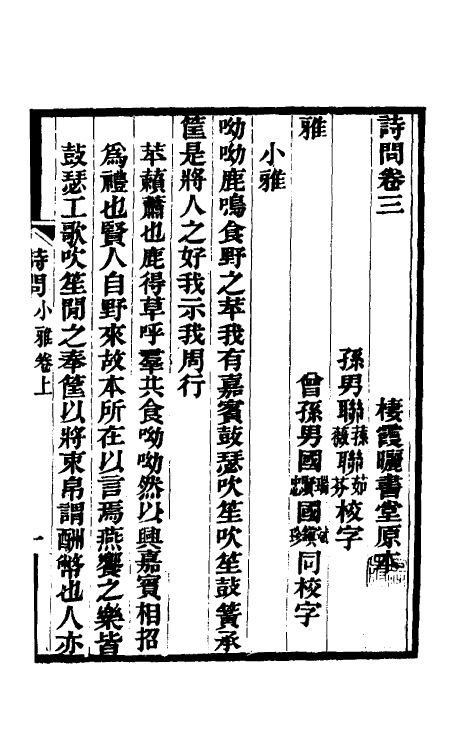 詩問卷三
棲霞曬書堂原本
孫男聯薇聯芬校字
聯蓀聯茹
曾孫男國國同校字
雅
小雅
呦呦鹿鳴食野之苹我有嘉賓鼓瑟吹笙吹笙鼓簧承
筐是將人之好我示我周行
苹藾蕭也鹿得草呼羣共食呦呦然以興嘉賓相招
爲禮也賢人自野來故本所在以言焉燕饗之樂皆
鼓瑟工歌吹笙閒之奉筐以將束帛謂酬幣也人亦
詩問小雅卷上
一